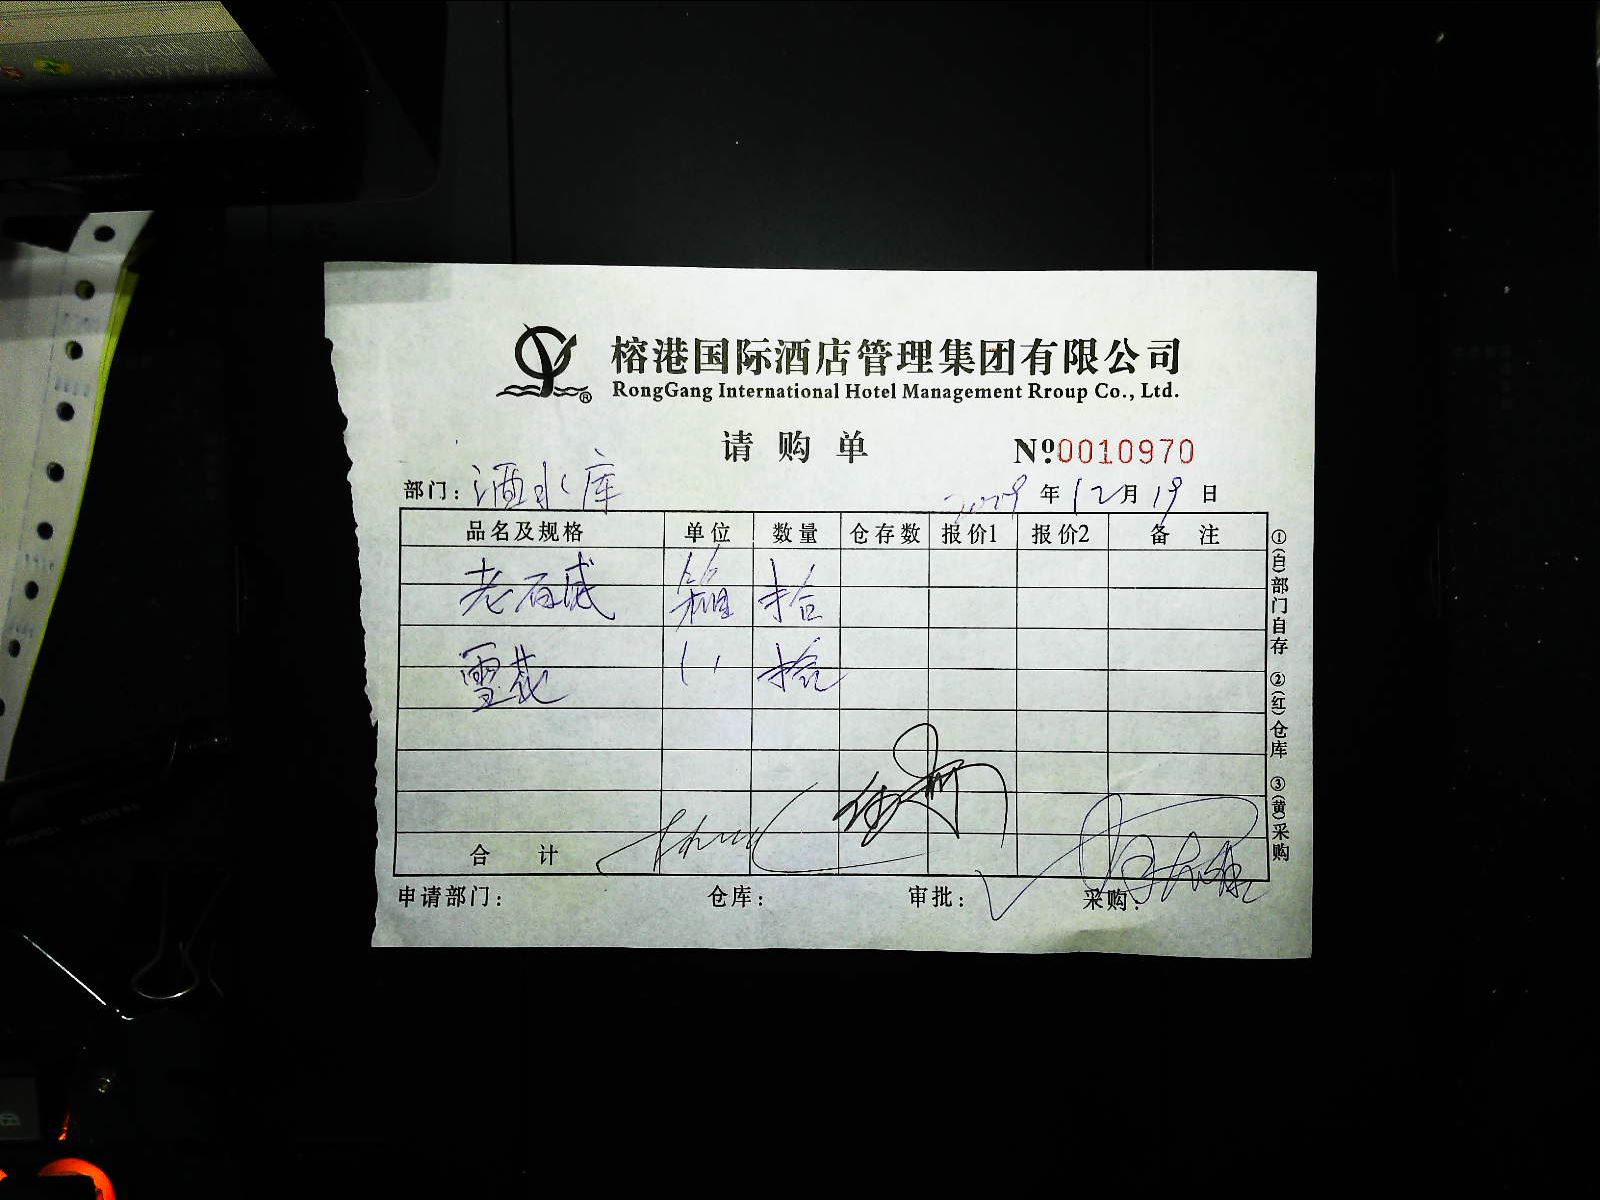 榕港国际酒店管理集团有限公司
RongGang International Hotel Management Rroup Co., Ltd.
请购单 Nº0010970
部门：酒水库 年12月19日
品名及规格 单位 数量 仓存数 报价1 报价2 备注
老百威 箱 拾
雪花 〃 拾
合计
申请部门： 仓库： 审批： 采购：
①(自)部门自存 ②(红)仓库 ③(黄)采购